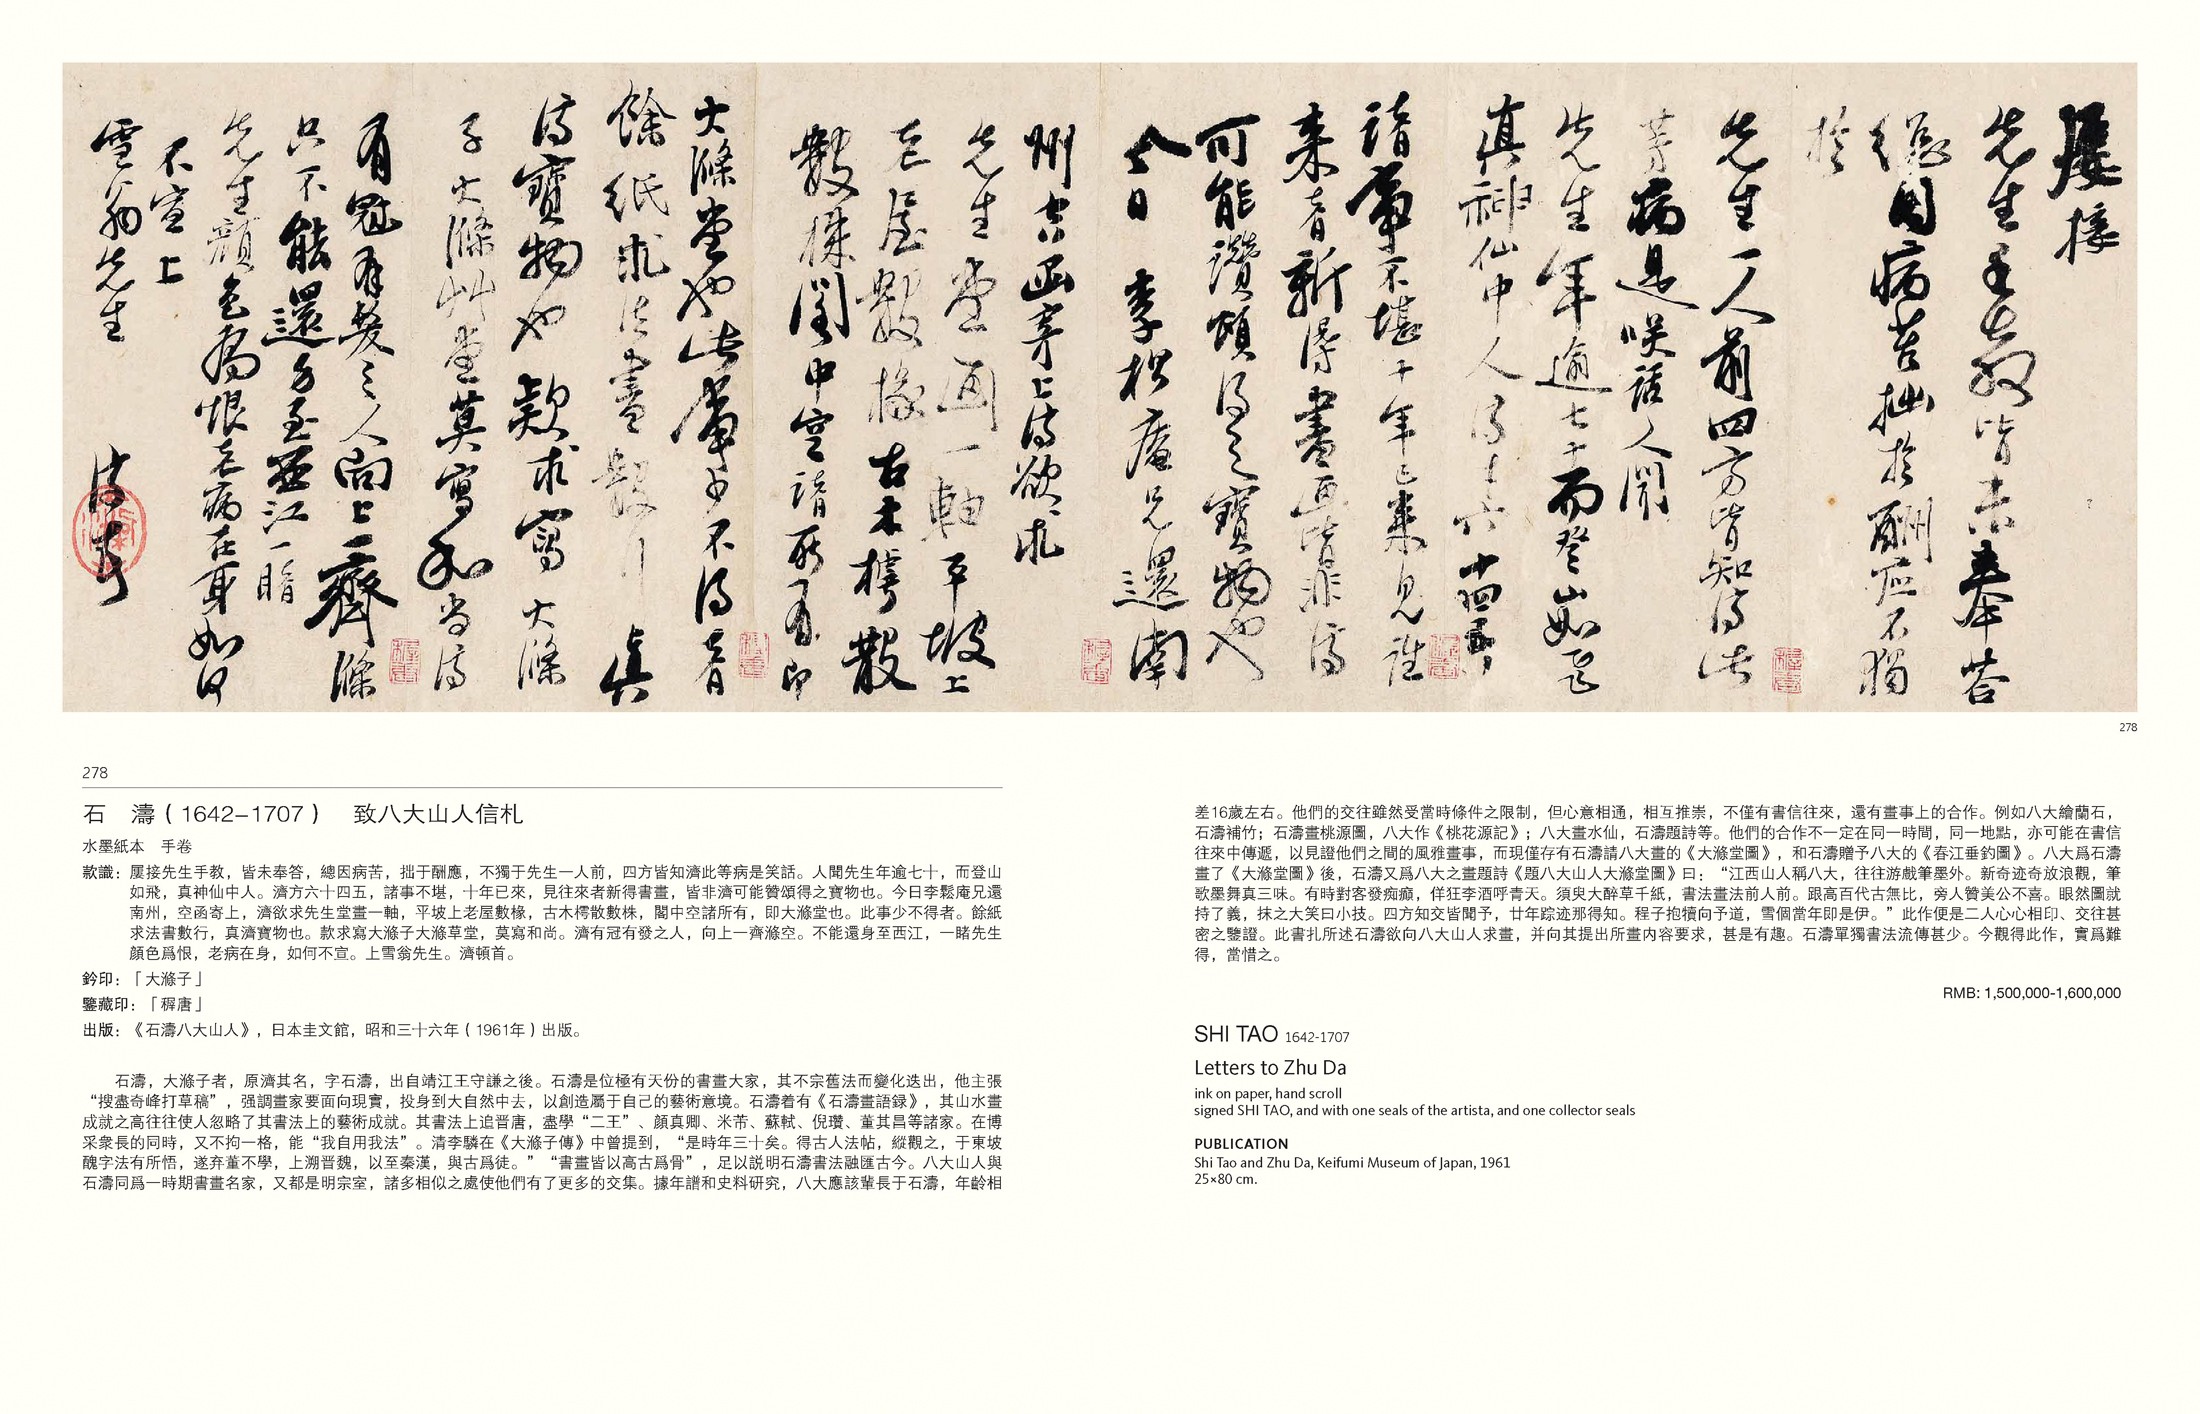 屢接
先生手教皆未奉荅
總因病苦拙於酬應不獨
於
先生一人前四方皆知濟此
等病是咲話人聞
先生年逾七十而登山如飛
真神仙中人濟才六十四五
諸事不堪十年已來見往
來者新得書画皆非濟
可能讚頌得之寶物也
今日 李松庵兄還南
州空函寄上濟欲求
先生堂画一軸平坡上
老屋數椽古木樗散
數株閣中空諸所有即
大滌堂也此事少不得者
餘紙求法書數行 真
濟寶物也 欵求寫 大滌
子大滌艸堂莫寫和尚濟
有冠有髮之人向上一齊滌
只不能還身至西江一睹
先生顏色為恨老病在身如何
不宣上
雪翁先生 濟頓首
278
278
石　濤（1642–1707）　致八大山人信札
水墨紙本　手卷
款識：屢接先生手教，皆未奉答，總因病苦，拙于酬應，不獨于先生一人前，四方皆知濟此等病是笑話。人聞先生年逾七十，而登山
如飛，真神仙中人。濟方六十四五，諸事不堪，十年已來，見往來者新得書畫，皆非濟可能贊頌得之寶物也。今日李鬆庵兄還
南州，空函寄上，濟欲求先生堂畫一軸，平坡上老屋數椽，古木樗散數株，閣中空諸所有，即大滌堂也。此事少不得者。餘紙
求法書數行，真濟寶物也。款求寫大滌子大滌草堂，莫寫和尚。濟有冠有發之人，向上一齊滌空。不能還身至西江，一睹先生
顏色爲恨，老病在身，如何不宣。上雪翁先生。濟頓首。
鈐印：「大滌子」
鑒藏印：「穉唐」
出版：《石濤八大山人》，日本圭文館，昭和三十六年（1961年）出版。
石濤，大滌子者，原濟其名，字石濤，出自靖江王守謙之後。石濤是位極有天份的書畫大家，其不宗舊法而變化迭出，他主張
“搜盡奇峰打草稿”，强調畫家要面向現實，投身到大自然中去，以創造屬于自己的藝術意境。石濤着有《石濤畫語録》，其山水畫
成就之高往往使人忽略了其書法上的藝術成就。其書法上追晋唐，盡學“二王”、顔真卿、米芾、蘇軾、倪瓚、董其昌等諸家。在博
采衆長的同時，又不拘一格，能“我自用我法”。清李驎在《大滌子傳》中曾提到，“是時年三十矣。得古人法帖，縱觀之，于東坡
醜字法有所悟，遂弃董不學，上溯晋魏，以至秦漢，與古爲徒。”“書畫皆以高古爲骨”，足以説明石濤書法融匯古今。八大山人與
石濤同爲一時期書畫名家，又都是明宗室，諸多相似之處使他們有了更多的交集。據年譜和史料研究，八大應該輩長于石濤，年齡相
差16歲左右。他們的交往雖然受當時條件之限制，但心意相通，相互推崇，不僅有書信往來，還有畫事上的合作。例如八大繪蘭石，
石濤補竹；石濤畫桃源圖，八大作《桃花源記》；八大畫水仙，石濤題詩等。他們的合作不一定在同一時間，同一地點，亦可能在書信
往來中傳遞，以見證他們之間的風雅畫事，而現僅存有石濤請八大畫的《大滌堂圖》，和石濤贈予八大的《春江垂釣圖》。八大爲石濤
畫了《大滌堂圖》後，石濤又爲八大之畫題詩《題八大山人大滌堂圖》曰：“江西山人稱八大，往往游戲筆墨外。新奇迹奇放浪觀，筆
歌墨舞真三味。有時對客發痴癲，佯狂李酒呼青天。須臾大醉草千紙，書法畫法前人前。跟高百代古無比，旁人贊美公不喜。眼然圖就
持了義，抹之大笑曰小技。四方知交皆聞予，廿年踪迹那得知。程子抱犢向予道，雪個當年即是伊。”此作便是二人心心相印、交往甚
密之鑒證。此書扎所述石濤欲向八大山人求畫，并向其提出所畫内容要求，甚是有趣。石濤單獨書法流傳甚少。今觀得此作，實爲難
得，當惜之。
RMB: 1,500,000-1,600,000
SHI TAO 1642-1707
Letters to Zhu Da
ink on paper, hand scroll
signed SHI TAO, and with one seals of the artista, and one collector seals
PUBLICATION
Shi Tao and Zhu Da, Keifumi Museum of Japan, 1961
25×80 cm.